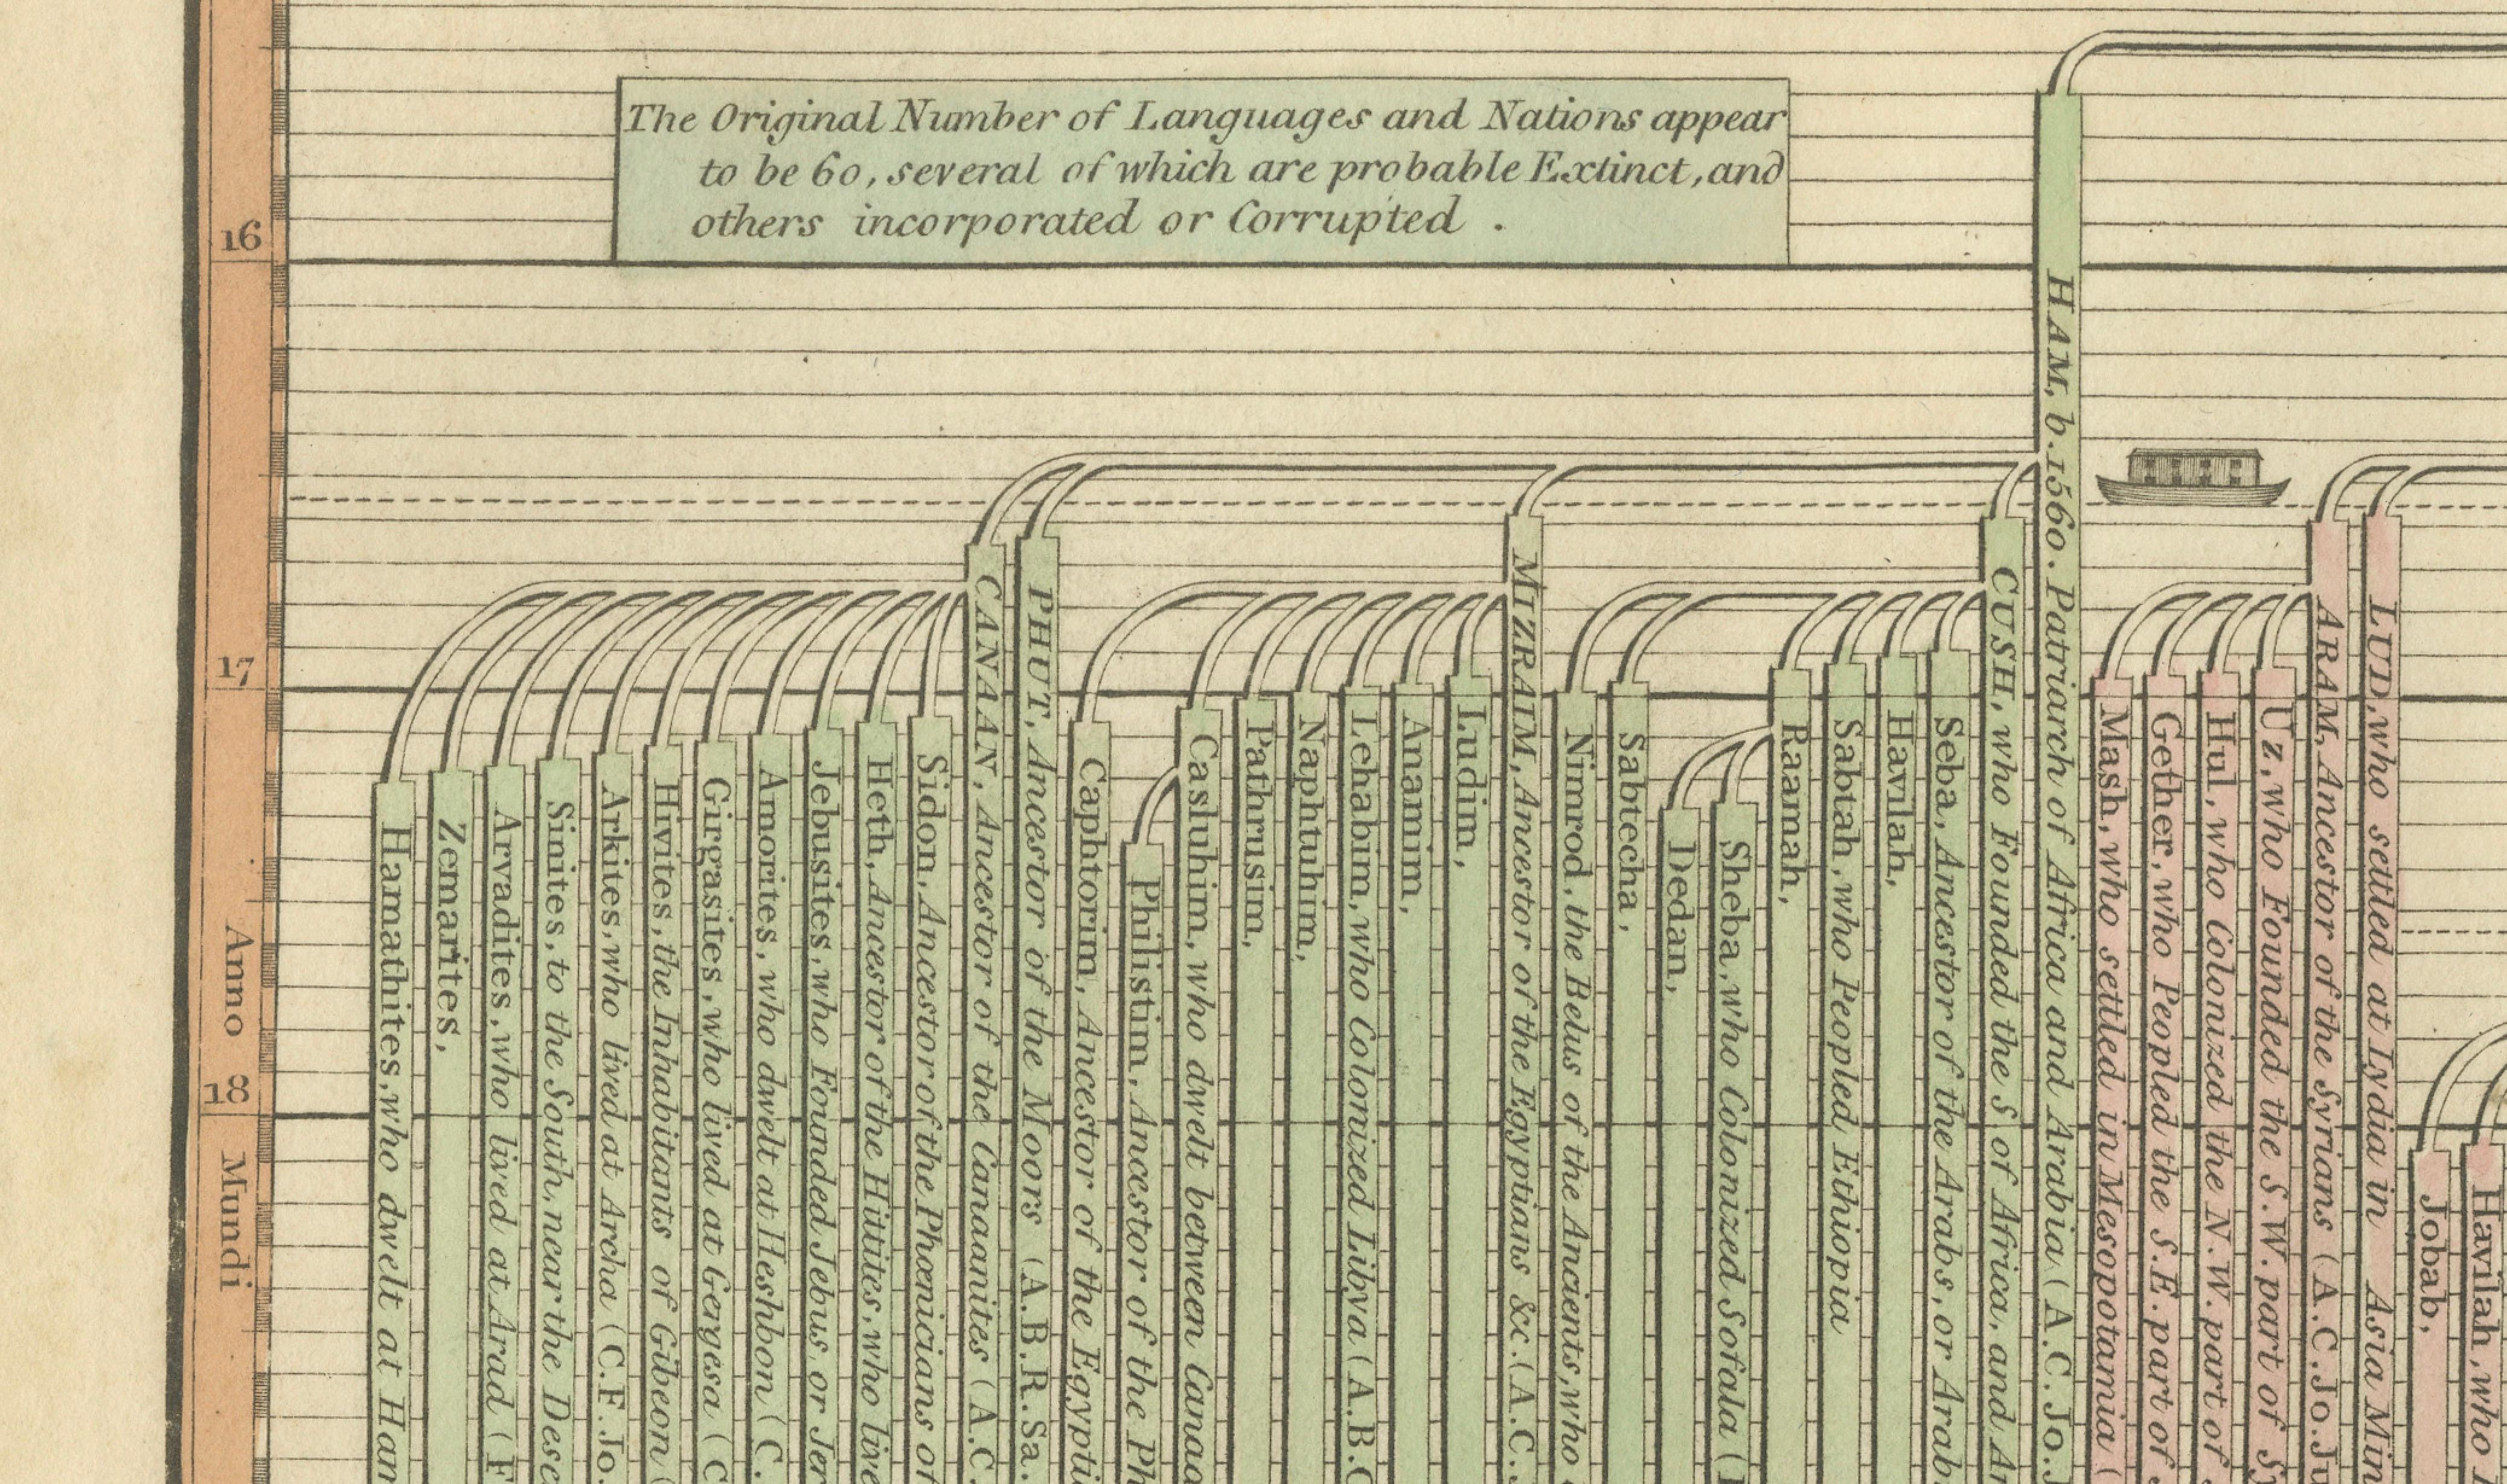 The Original Number of Languages and Nations appear
to be 60, several of which are probable Extinct, and
others incorporated or Corrupted .
16
17
Anno
18
Mundi
Hamathites, who dwelt at
Zemarites,
Arvadites, who lived at Arad (
Sinites, to the South, near the
Arkites, who lived at Archa (C.F. Jo.
Hivites, the Inhabitants of Gibeon (
Girgasites, who lived at Gergesa (C
Amorites, who dwelt at Heshbon (C.
Jebusites, who Founded Jebus, or
Heth, Ancestor of the Hittites, who
Sidon, Ancestor of the Phœnicians
CANAAN, Ancestor of the Canaanites (A.C.
PHUT, Ancestor of the Moors (A.B.R.Sa.
Caphtorim, Ancestor of the
Philistim, Ancestor of the
Casluhim, who dwelt between
Pathrusim,
Naphtuhim,
Lehabim, who Colonized Libya (A.B.
Anamim,
Ludim,
MIZRAIM, Ancestor of the Egyptians &c. (A.C.
Nimrod, the Belus of the Ancients, who
Sabtecha,
Dedan,
Sheba, who Colonized Sofala (
Raamah,
Sabtah, who Peopled Ethiopia
Havilah,
Seba, Ancestor of the Arabs, or
CUSH, who Founded the S. of Africa, and
HAM, b. 1560. Patriarch of Africa and Arabia (A.C. Jo.
Mash, who settled in Mesopotamia (
Gether, who Peopled the S.E. part of
Hul, who Colonized the N.W. part of
Uz, who Founded the S.W. part of
ARAM, Ancestor of the Syrians (A.C. Jo.
LUD, who settled at Lydia in Asia
Jobab,
Havilah, who